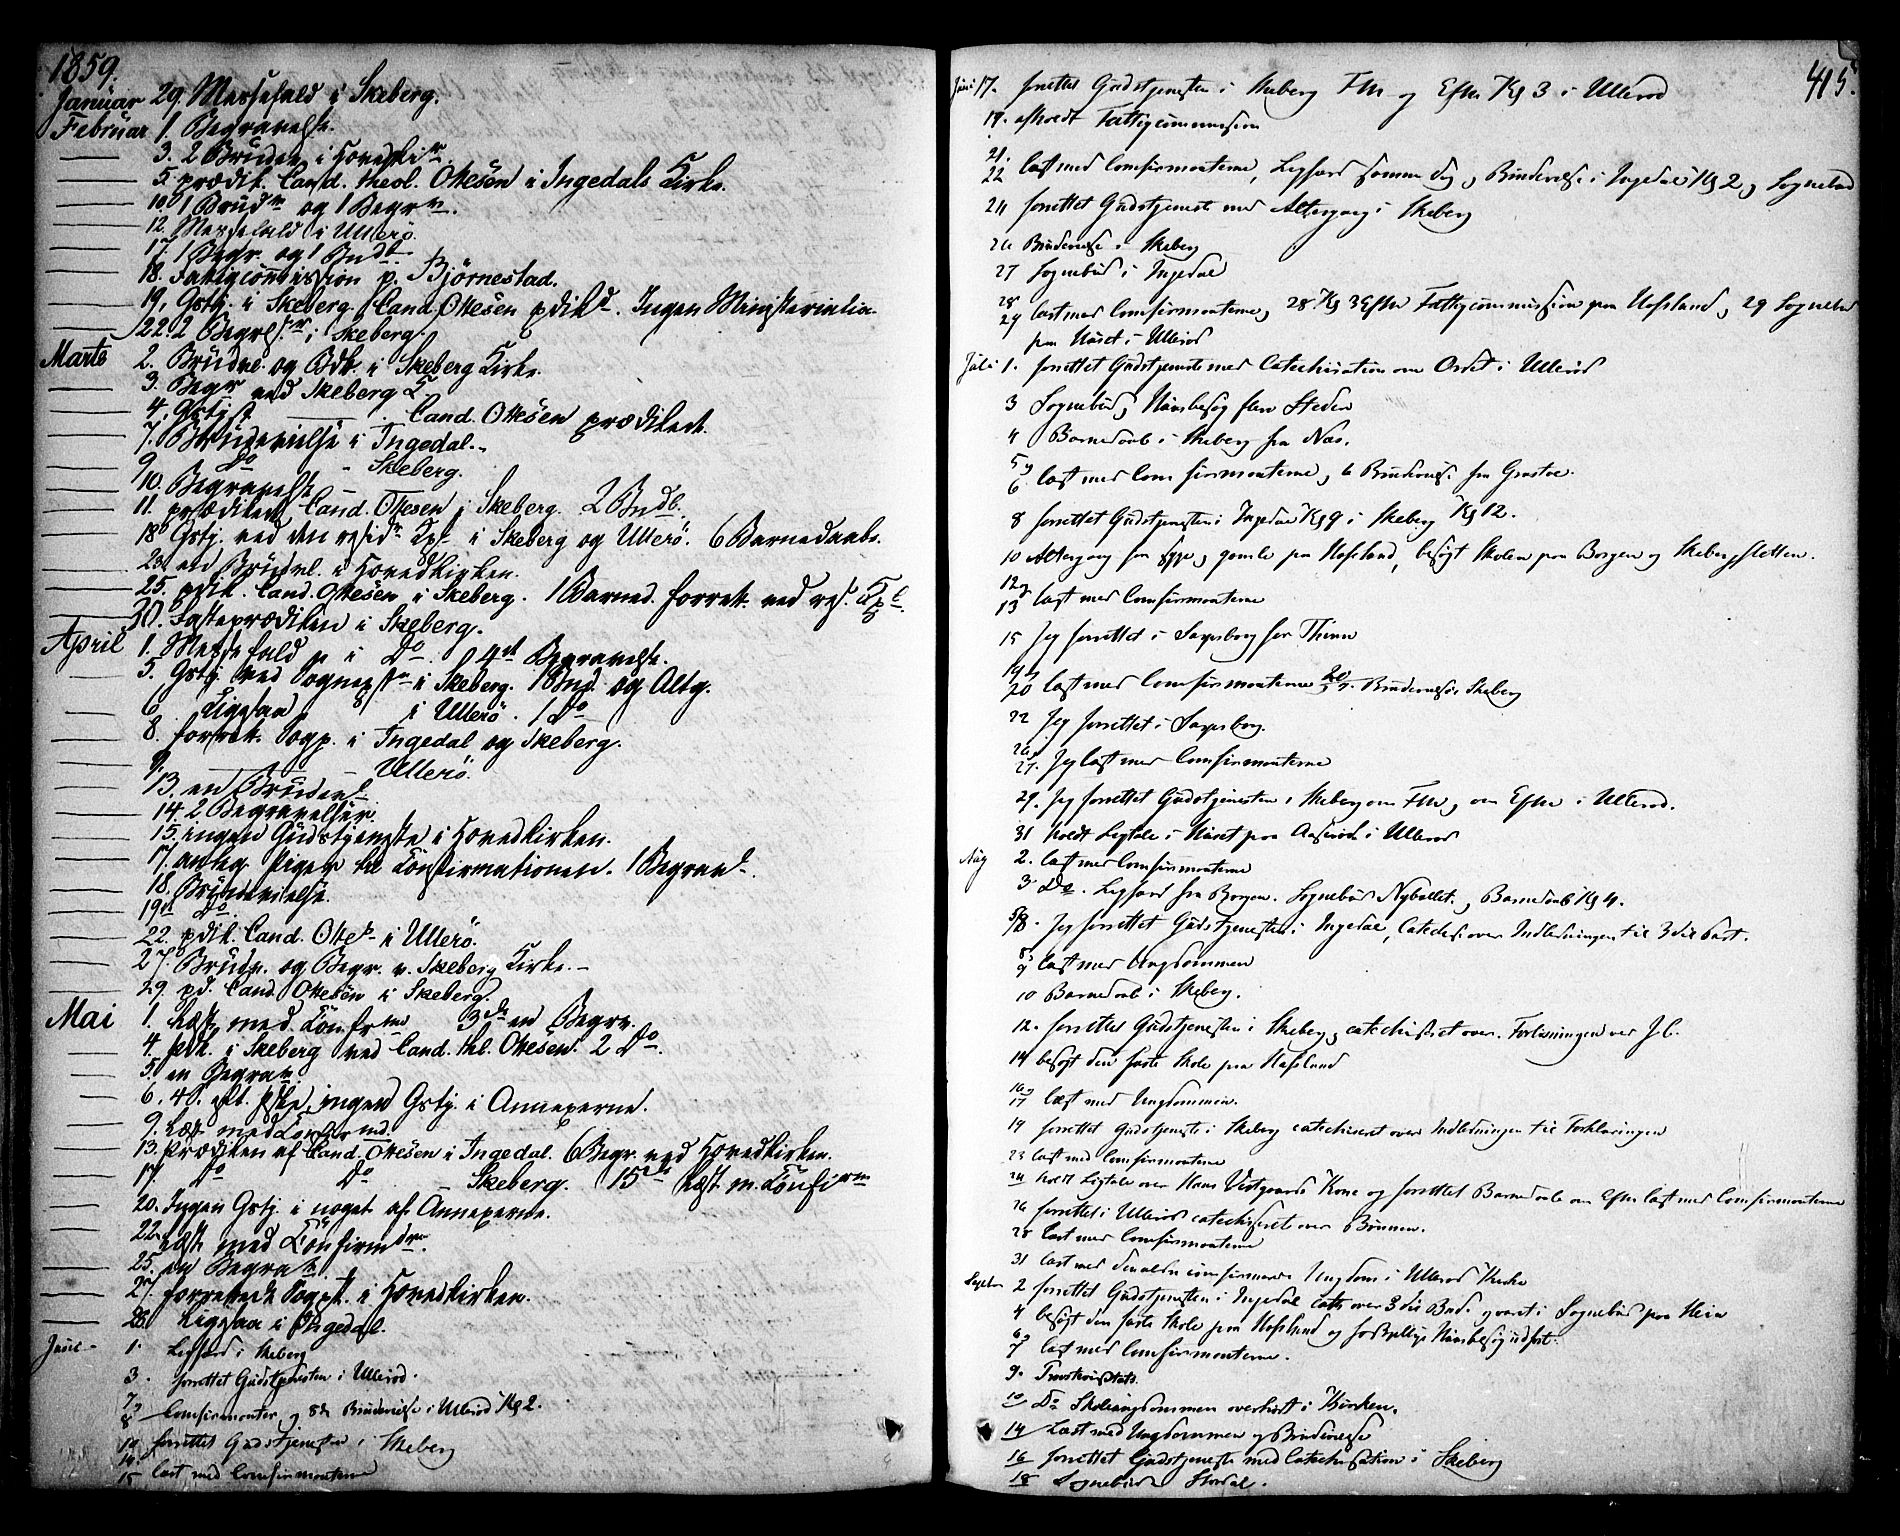 1859.
Januar 29. Messefald i Skeberg.
Februar 1. Begravelse.
3. 2 Brudev. i Hovedki
5. prædik. Cand. theol. Ottesen i Ingedals Kirke.
10. 1 Brud og 1 Begr
12. Messefald i Ullerö.
17. 1 Begr. og 1 Bndb
18. Fattigcommission p. Björnestad.
19. Gstj. i Skeberg Cand. Ottesen pdik. Ingen Ministerialia.
22. 2 Begrels. i Skeberg
Marts 2. Brudvl. og Bdb. i Skeberg Kirke.
3. Begr ved Skeberg K
4. Gstj. Cand. Ottesen prædikede.
7. Brudevielse i Ingedal.
9. Do - Skeberg.
10. Begravelse
11. prædiked Cand. Ottesen i Skeberg. 2 Bndb.
18. Gstj. ved den resid. Kpl. i Skeberg og Ullerö. 6 Barnedaab.
23. en Brudvl. i Hovedkirken.
25. pdik. Cand. Ottesen i Skeberg. 1 Barned. forrett. ved res. Kpl.
30. Fasteprædiken i Skeberg.
April 1. Messefald i Do. 4 Begravelse.
5. Gstj. ved Sognepr i Skeberg. 1 Bnd. og Altg.
6. Ligesaa i Ullerö. 1 Do
8. forrett. Sogp. i Ingedal og Skeberg.
9. - Ullerö.
13. en Brudevl.
14. 2 Begravelser.
15. ingen Gudstjeneste i Hovedkirken.
17. antag. Piger til Konfirmationen. 1 Begravl.
18. Brudevielse.
19. Do.
22. pdik. Cand. Ottes. i Ullerö.
27. Brudv. og Begr. v. Skeberg Kirke.
29. pd. Cand. Ottesen i Skeberg.
Mai 1. Læst med Konfrm 3 en Begrv.
4. pdk. i Skeberg ved Cand. thl. Ottesen. 2 Do.
5. en Begrav.
6. 4 ingen Gstj. i Annexerne.
9. Læst med Confirmd.
13. Prædiken af Cand. Ottesen i Ingedal. 6 Begr. ved Hovedkirken.
17. Do Do - Skeberg. 15 Læst m. Konfirm
20. Ingen Gstj. i noget af Annexerne.
22. Læst med Konfirmd
25. en Begrav.
27. forrettede Sogpt. i Hovedkirken.
28. Ligesaa i Ingedal.
Juni 1. Ligfærd i Skeberg
3. forrettet Gudstjenesten i Ullerød.
7 8 Comfirmanter og 8de Brudevielse i Ullerød Kl 2.
10 forrettet Gudstjenesten i Skeberg
14. 15 læst med Comfirmanterne
415.
Juni 17. forrettet Gudstjenesten i Skeberg FM og Efter Kl 3 i Ullerød
19. afholdt Fattigcommission
21. 22 læst med Comfirmanterne, Ligfærd samme Dag, Brudevielse i Ingedal Kl 2, Sognebud
24 forrettet Gudstjeneste med Altergang i Skeberg
26 Brudevielse i Skeberg
27 Sognebud i Ingedal
28 29 læst med Comfirmanterne, 28 Kl 3 Efter Fattigcommission paa Hafslund, 29 Sognebud
paa Huset i Ullerød
Juli 1. forrettet Gudstjeneste med Catechisation om Ordet i Ullerød
3 Sognebud, Huusbesøg flere Steder
4 Barnedaab i Skeberg fra Næs.
5 6 læst med Comfirmanterne, 6 Brudeviels. fra
8 forrettet Gudstjenesten i Ingedal Kl 9 i Skeberg Kl 12.
10 Altergang for syge, gamle paa Hafslund, besøgt Skolen paa Borgen og Skebergsletten.
12 13 læst med Comfirmanterne
15 Jeg forrettet i Sarpsborg for
19 20 læst med Comfirmanterne Brudevielse Skeberg
22 Jeg forrettet i Sarpsborg.
26 27. Jeg læst med Comfirmanterne
29. Jeg forrettet Gudstjenesten i Skeberg om FM, om Efter i Ullerød.
31 holdt Ligtale i Huset paa i Ullerød
Aug 2. læst med Comfirmanterne
3. Do. Ligfærd fra Borgen. Sognebud Nyballet, Barnedaab Kl 4.
5/8. Jeg forrettet Gudstjenesten i Ingedal, Catechis. over Indledningen til 3die Part.
8 9 læst med Ungdommen
10 Barnedaab i Skeberg.
12. forrettet Gudstjenesten i Skeberg, catechiseret over Forløsningen ved J. C.
14 besøgt den faste Skole paa Hafslund
16 17 læst med Ungdommen.
19 forrettet Gudstjeneste i Skeberg catechiseret over Indledningen til Forklaringen
23 læst med Comfirmanterne
24 holdt Ligtale over Hans Vestgaards Kone og forrettet Barnedaab om Efter læst med Comfirmanterne
26 forrettet i Ullerød catechiseret over Bønnen.
28 læst med Comfirmanterne
31 læst med den ældre comfirmerede Ungdom i Ullerød Kirke
Septbr 2 forrettet Gudstjenesten i Ingedal cats over 3die Bud. og været i Sognebud paa
4 besøgt den faste Skole paa Hafslund og forskjellige Huusbesøg udført.
6 7 læst med Comfirmanterne.
9.
10 Do Skoleungdommen overhørt i Kirken.
14 Læst med Ungdommen og Brudevielse
16 forrettet Gudstjeneste med Catechisation i Skeberg
18 Sognebud Stordal.